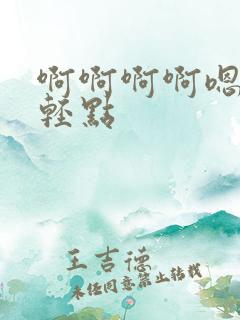 啊啊啊啊嗯
輕點
王吉德
未经同意禁止转载